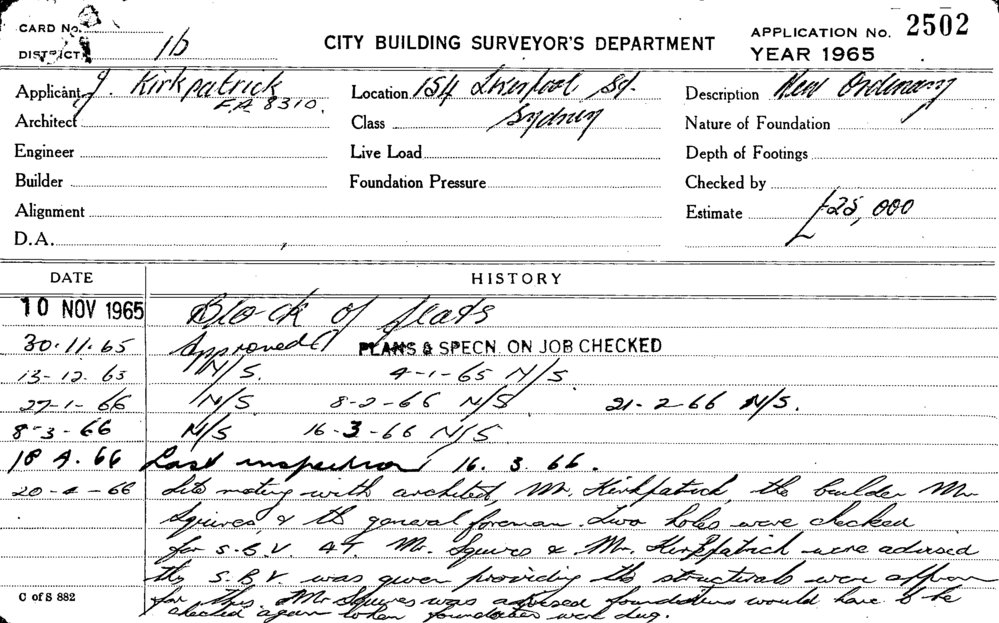 CARD No.
DISTRICT 1b
CITY BUILDING SURVEYOR'S DEPARTMENT
APPLICATION No. 2502
YEAR 1965
Applicant J. Kirkpatrick
FA 8310.
Location 154 Liverpool St.
Sydney
Description New Ordinary
Architect
Class
Nature of Foundation
Engineer
Live Load
Depth of Footings
Builder
Foundation Pressure
Checked by
Alignment
Estimate £25,000
D.A.
DATE HISTORY
10 NOV 1965 Block of flats
30.11.65 Approved PLANS & SPECN. ON JOB CHECKED
13-12.65 N/S. 4-1-65 N/S.
27-1-66 N/S. 8-2-66 N/S 21-2-66 N/S.
8-3-66 N/S 16-3-66 N/S.
18 4.66 Last inspection 16.3.66.
20-4-66 Site meeting with architect, Mr. Kirkpatrick, the builder Mr
Squires & the general foreman. Two holes were checked
for S.B.V. 4T. Mr. Squires & Mr. Kirkpatrick were advised
the S.B.V. was given providing the structurals were
for this. Mr Squires was advised foundations would have to be
checked again when foundations were dug.
C of S 882